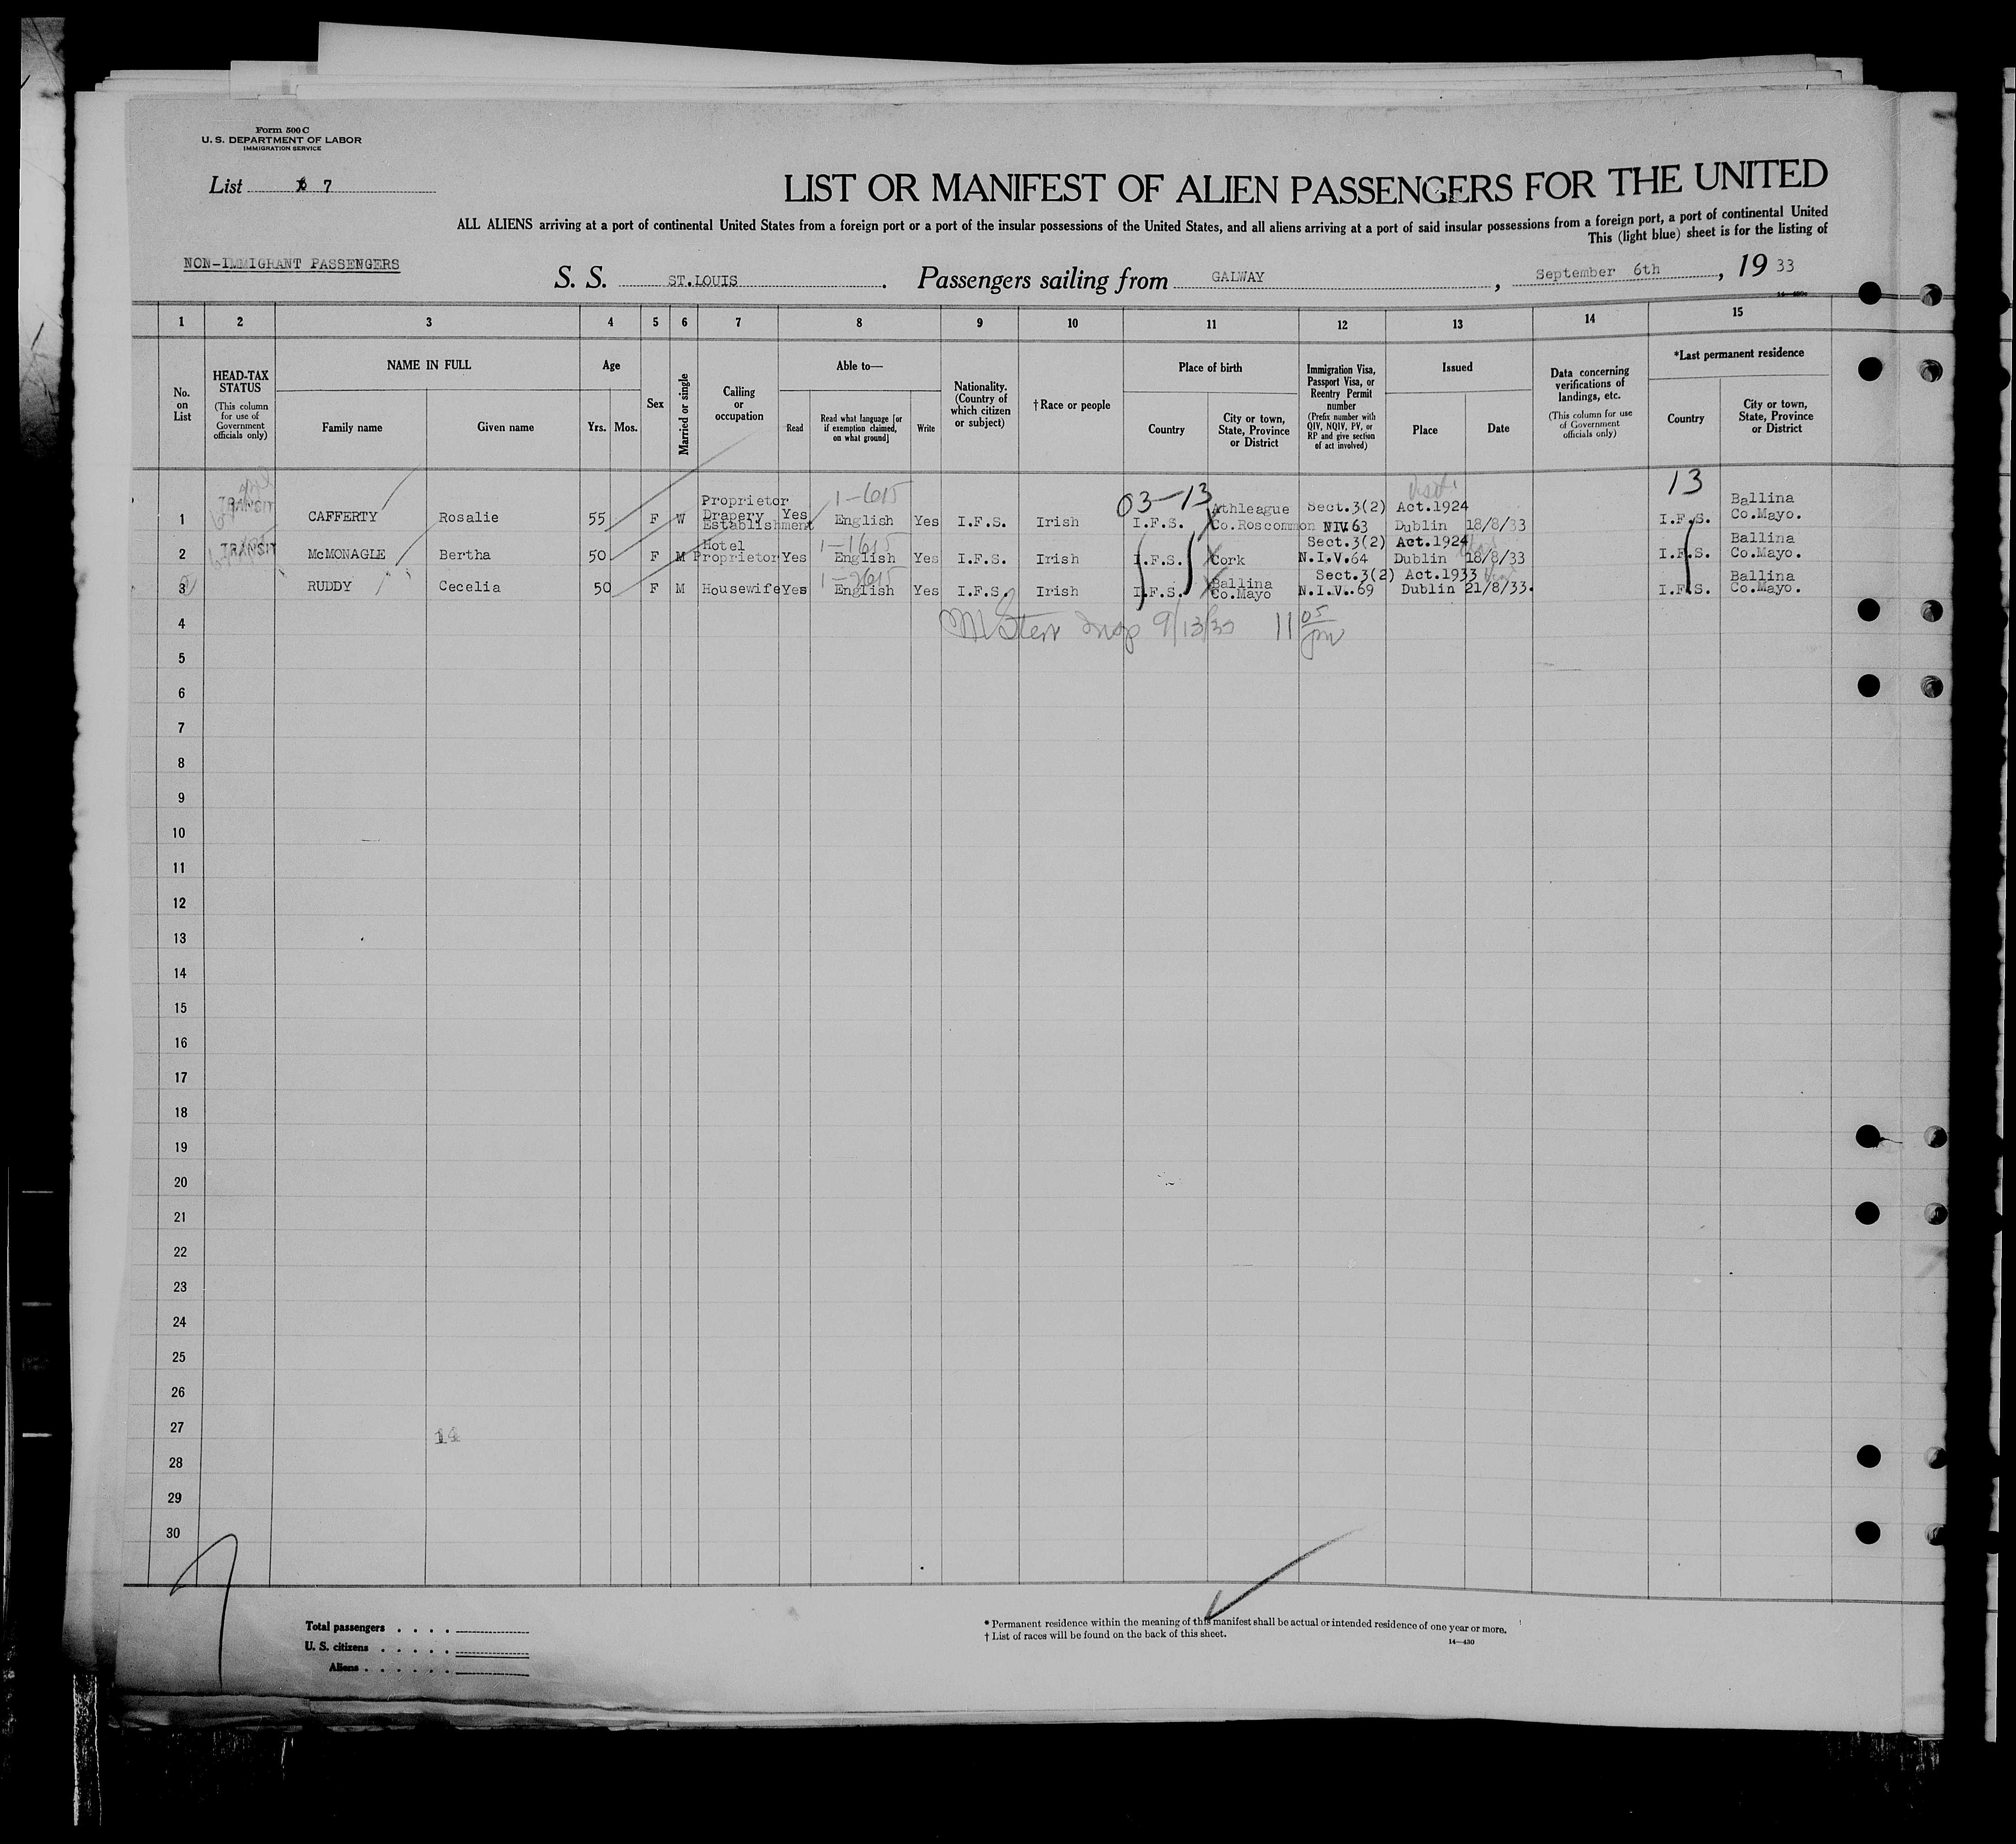 Form 500 C
U. S. DEPARTMENT OF LABOR
IMMIGRATION SERVICE
List 7
LIST OR MANIFEST OF ALIEN PASSENGERS FOR THE UNITED
ALL ALIENS arriving at a port of continental United States from a foreign port or a port of the insular possessions of the United States, and all aliens arriving at a port of said insular possessions from a foreign port, a port of continental United
This (light blue) sheet is for the listing of
NON-IMMIGRANT PASSENGERS
S. S. ST.LOUIS. Passengers sailing from GALWAY, September 6th, 19 33
1 2 3 4 5 6 7 8 9 10 11 12 13 14 15
No. on List
HEAD-TAX STATUS (This column for use of Government officials only)
NAME IN FULL
Family name
Given name
Age
Yrs. Mos.
Sex
Married or single
Calling or occupation
Able to—
Read
Read what language [or if exemption claimed, on what ground]
Write
Nationality. (Country of which citizen or subject)
†Race or people
Place of birth
Country
City or town, State, Province or District
Immigration Visa, Passport Visa, or Reentry Permit number (Prefix number with QIV, NQIV, PV, or RP and give section of act involved)
Issued
Place
Date
Data concerning verifications of landings, etc. (This column for use of Government officials only)
*Last permanent residence
Country
City or town, State, Province or District
03-13 13
1-615
1 TRANSIT CAFFERTY Rosalie 55 F W Proprietor Drapery Establishment Yes English Yes I.F.S. Irish I.F.S. Athleague Co.Roscommon Sect.3(2) Act.1924 NIV.63 Dublin 18/8/33 I.F.S. Ballina Co.Mayo.
1-1615
2 TRANSIT McMONAGLE Bertha 50 F M Hotel Proprietor Yes English Yes I.F.S. Irish I.F.S. Cork Sect.3(2) Act.1924 N.I.V.64 Dublin 18/8/33 I.F.S. Ballina Co.Mayo.
1-2615
3 RUDDY Cecelia 50 F M Housewife Yes English Yes I.F.S. Irish I.F.S. Ballina Co.Mayo Sect.3(2) Act.1933 N.I.V..69 Dublin 21/8/33. I.F.S. Ballina Co.Mayo.
4 Stern Insp 9/13/33 11 05 pm
5
6
7
8
9
10
11
12
13
14
15
16
17
18
19
20
21
22
23
24
25
26
27
14
28
29
30
7
Total passengers . . . .
U. S. citizens . . . . .
Aliens . . . . . .
* Permanent residence within the meaning of this manifest shall be actual or intended residence of one year or more.
† List of races will be found on the back of this sheet.
14—430